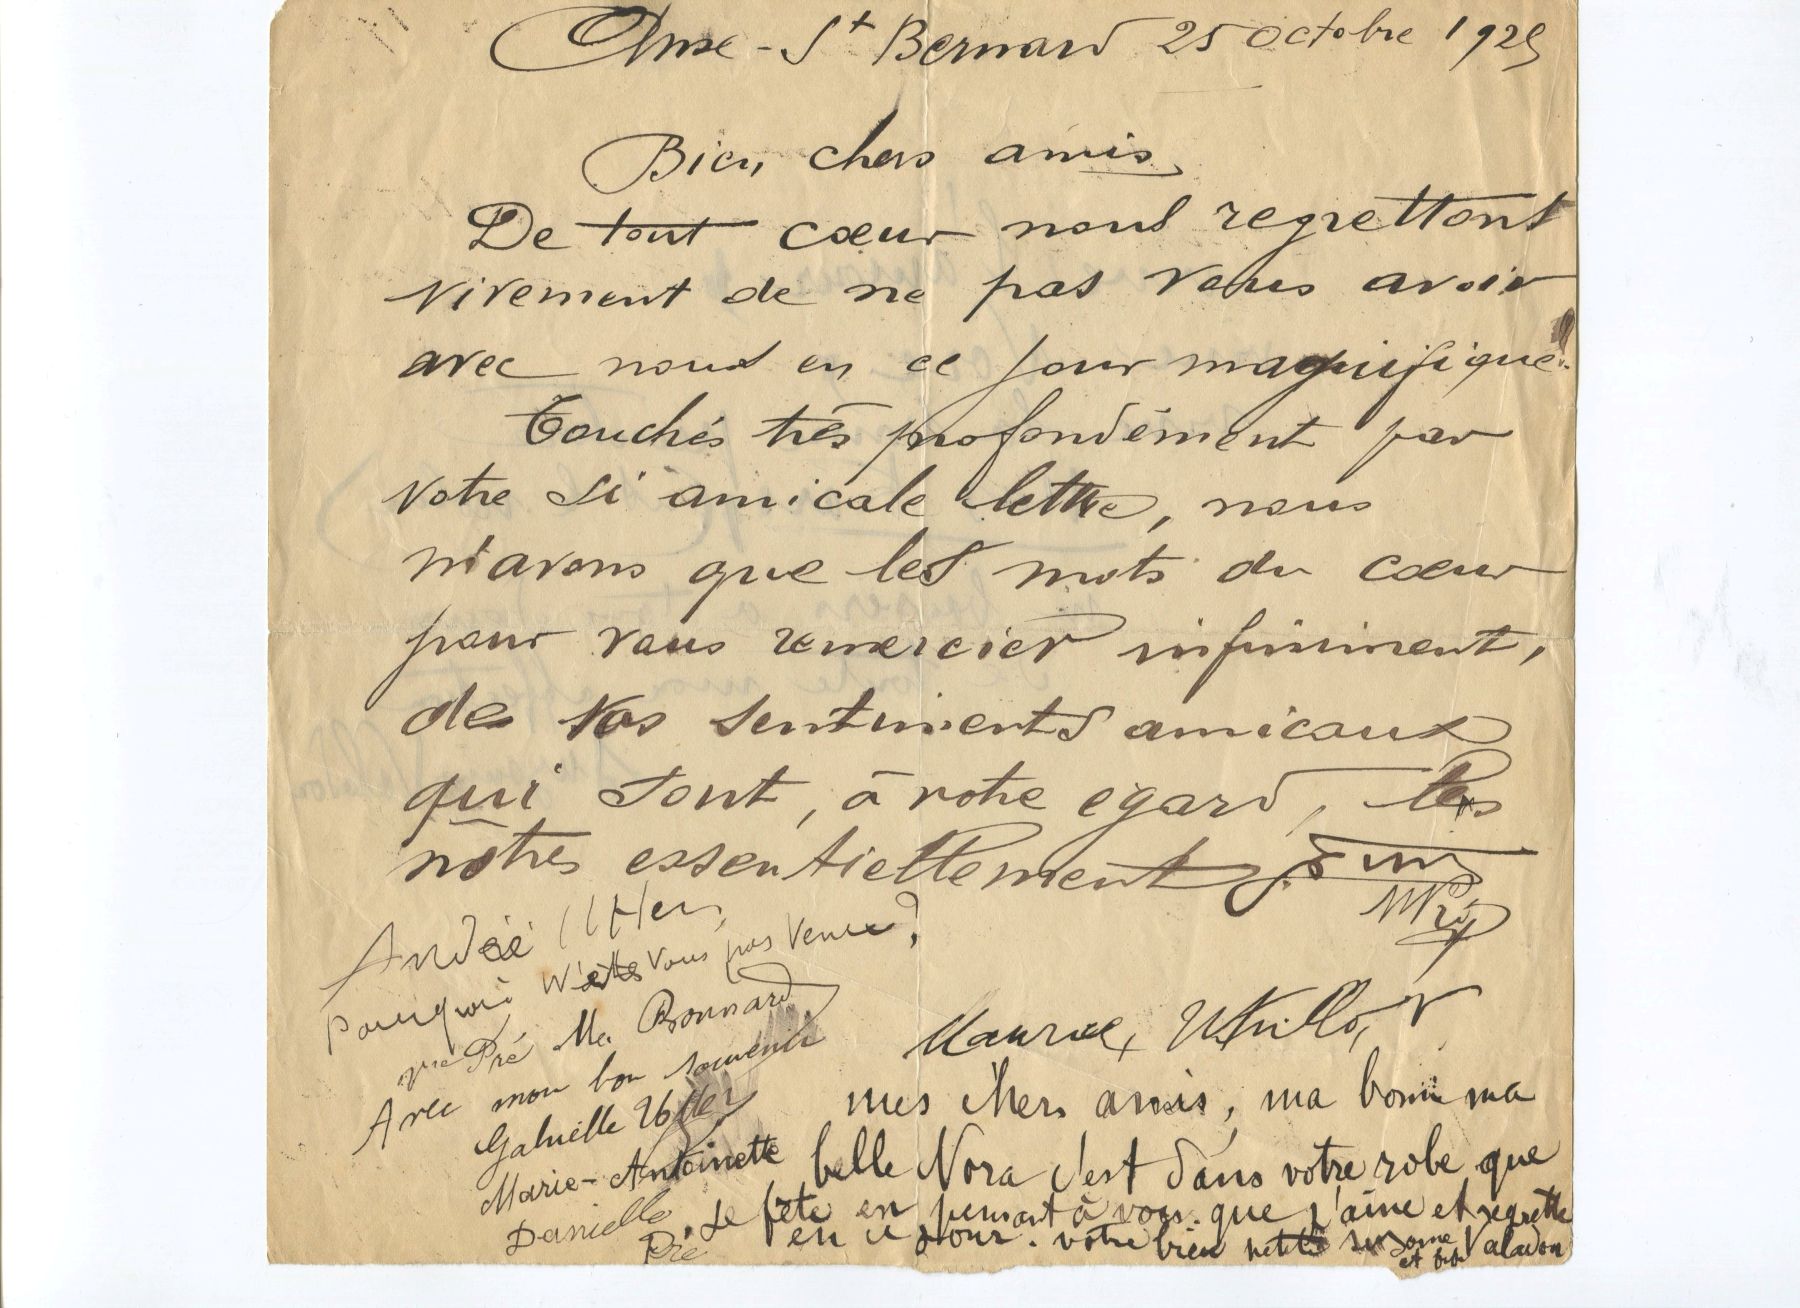 Anse - St Bernard 25 Octobre 1925
Bien chers amis,
De tout cœur nous regrettons
vivement de ne pas vous avoir
avec nous en ce jour magnifique.
Touchés très profondément par
votre si amicale lettre, nous
n'avons que les mots du cœur
pour vous remercier infiniment,
de vos sentiments amicaux
qui sont, à votre égard, les
nôtres essentiellement.
Maurice, Utrillo, V
André Utter,
Pourquoi n'êtes vous pas venus?
Pré Me Bonnard
Avec mon bon souvenir
Gabrielle Utter
Marie-Antoinette
Danielle
Pré
mes chers amis, ma bonne ma
belle Nora c'est dans votre robe que
je fête en pensant à vous que j'aime et regrette
en ce jour. votre bien petite suzanne Valadon
et